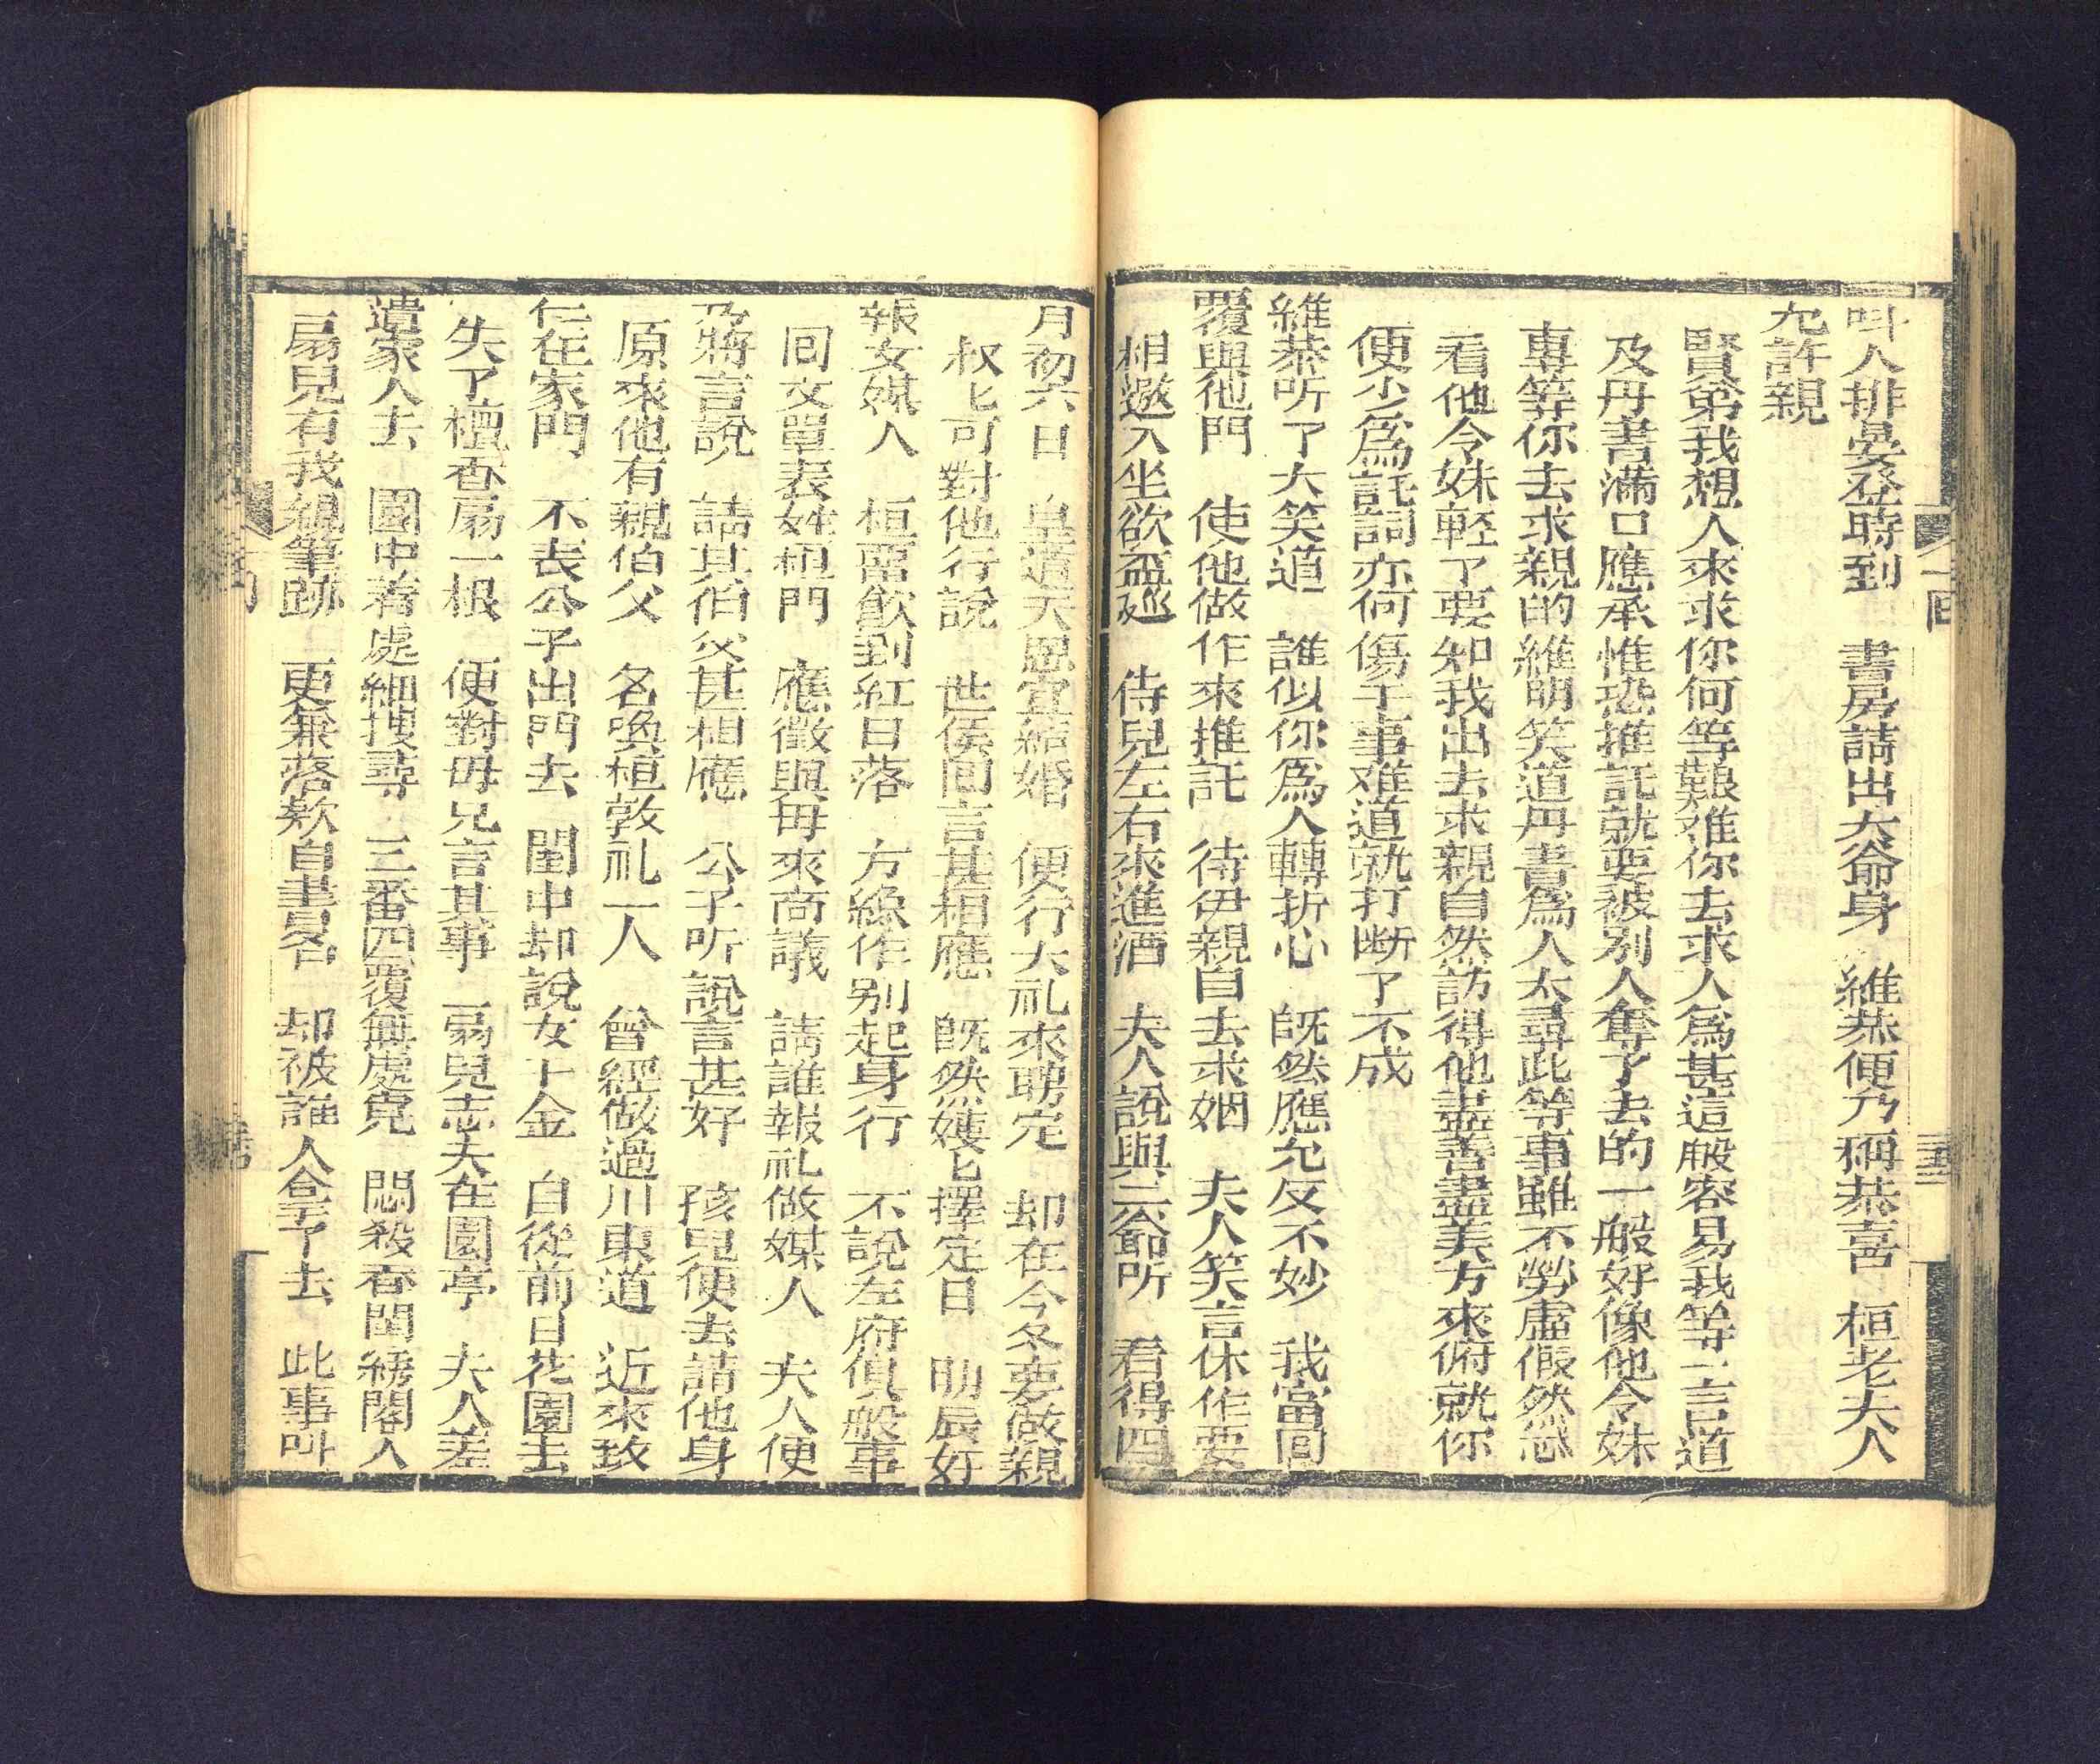 叫人排晏登時到　書房請出大爺身　維恭便乃稱恭喜　桓老夫人
允許親
賢弟我想人來求你何等艱难你去求人爲甚這般容易我等一言道
及丹書滿口應承惟恐推託就要被别人奪了去的一般好像他令妹
專等你去求親的維明笑道丹書爲人太尋此等事雖不勞虛假然恐
看他令妹軽了要如我出去求親自然訪得他盡善盡美方來俯就你
便少爲託詞亦何傷于事难道就打断了不成
維恭听了大笑道　誰似你爲人轉折心　既然應允反不妙　我當囘
覆與他門　使他做作來推託　待伊親自去求姻　夫人笑言休作要
相邀入坐欲盃廵　侍兒左右來進酒　夫人說與二爺听　看得四
月初六日　皇道天恩宜結婚　便行大礼來聘定　却在今冬要做親
叔匕可對他行說　世侯囘言甚相應　既然嫂匕擇定日　明辰好
報女媒人　桓畱飲到紅日落　方纔作别起身行　不說左府俱般事
囘文單表姓桓門　應徵與母來商議　請誰報礼做媒人　夫人便
乃將言說　請其伯父甚相應　公子听說言甚好　孩兒便去請他身
原來他有親伯父　名喚桓敦礼一人　曾經做過川東道　近來致
仁在家門　不表公子出門去　閨中却說女千金　自從前日花園去
失了檀香扇一根　便對毋兄言其事　扇兒志夫在園亭　夫人差
遺家人去　園中著處細搜尋　三番四覆無處覓　悶殺春閨綉閣人
扇兒有我親筆跡　更兼落欵自畫名　却被誰人拿了去　此事叫
一囘